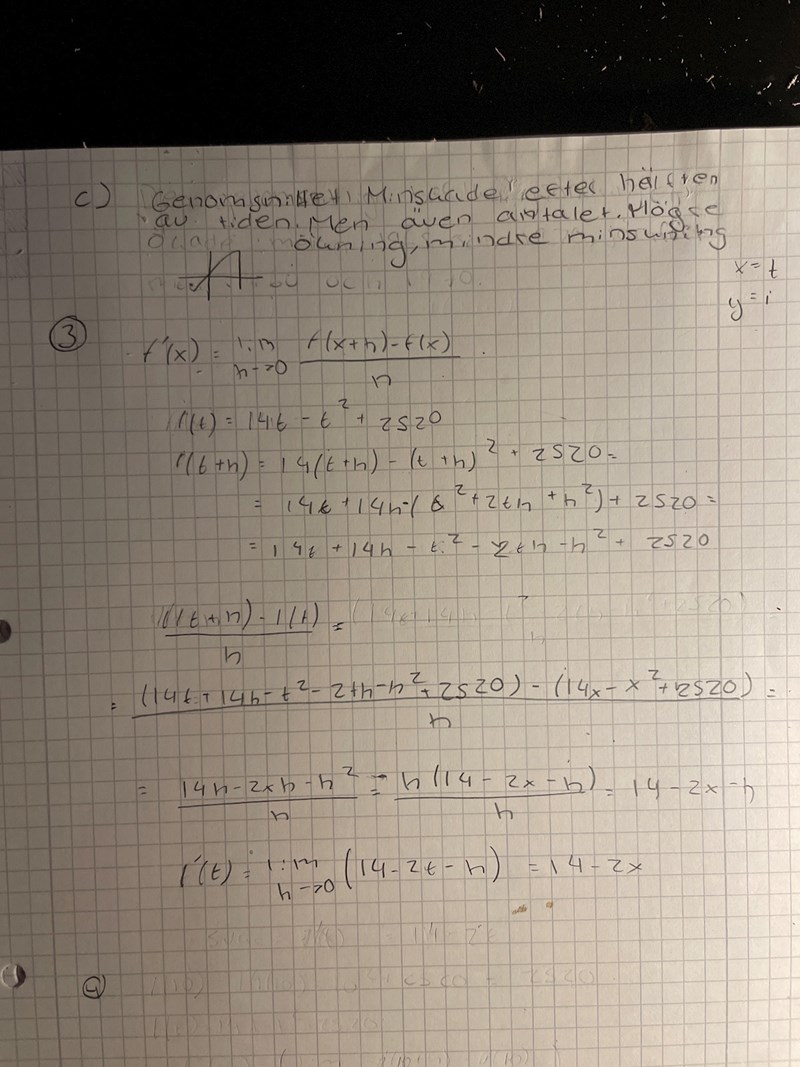 c) Genomsnittet Minskade efter hälften
av tiden. Men även antalet. Högre
ökning, mindre minskning
x = t
y = i
③ f'(x) = lim h→0 (f(x+h) - f(x))/h
i(t) = 14t - t² + 2520
i(t+h) = 14(t+h) - (t+h)² + 2520 =
= 14t + 14h - (t² + 2th + h²) + 2520 =
= 14t + 14h - t² - 2th - h² + 2520
(i(t+h) - i(t))/h =
= ((14t + 14h - t² - 2th - h² + 2520) - (14x - x² + 2520))/h =
= (14h - 2xh - h²)/h = h(14 - 2x - h)/h = 14 - 2x - h
i'(t) = lim h→0 (14 - 2t - h) = 14 - 2x
④